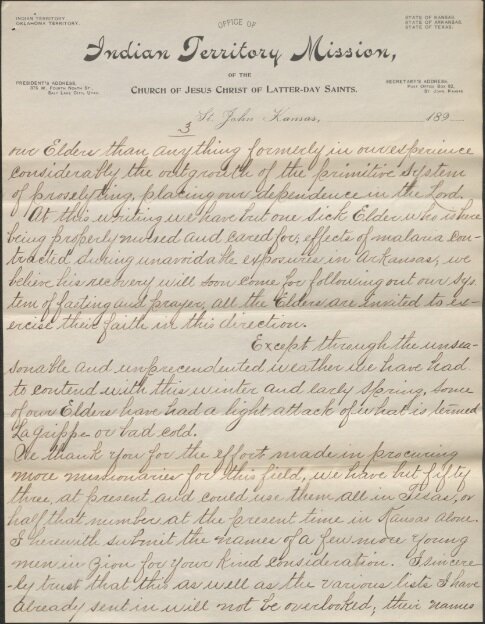 INDIAN TERRITORY.
OKLAHOMA TERRITORY.
STATE OF KANSAS.
STATE OF ARKANSAS.
STATE OF TEXAS.
OFFICE OF
Indian Territory Mission,
OF THE
CHURCH OF JESUS CHRIST OF LATTER-DAY SAINTS.
PRESIDENT'S ADDRESS:
375 W. FOURTH NORTH ST.
SALT LAKE CITY, UTAH.
SECRETARY'S ADDRESS:
POST OFFICE BOX 82,
ST. JOHN KANSAS
St. John Kansas, 189
3
our Elders than anything formerly in our experience
considerably the outgrowth of the primitive system
of proselyting, placing our dependence in the Lord.
At this writing we have but one sick Elder who is here
being properly nursed and cared for; effects of malaria con-
tracted during unavoidable exposures in Arkansas; we
believe his recovery will soon come for following out our sys
tem of fasting and prayer, all the Elders are invited to ex-
ercise their faith in this direction.
Except through the unsea-
sonable and unprecendented weather we have had
to contend with this winter and early Spring, some
of our Elders have had a light attack of what is termed
La Grippe or bad cold.
We thank You for the effort made in procuring
more missionaries for this field, we have but fifty
three, at present and could use them all in Texas, or
half that number at the present time in Kansas alone.
I herewith submit the names of a few more young
men in Zion for your kind consideration. I sincere
-ly trust that this as well as the various lists I have
already sent in will not be overlooked, their names